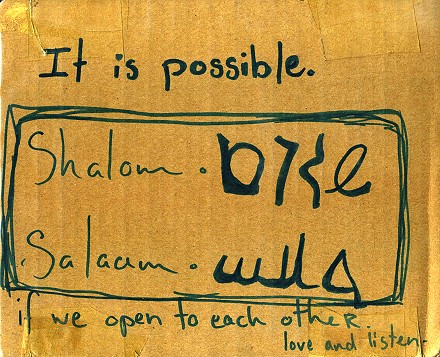 It is possible.
Shalom. שלום
Salaam. سلام
if we open to each other.
love and listen.